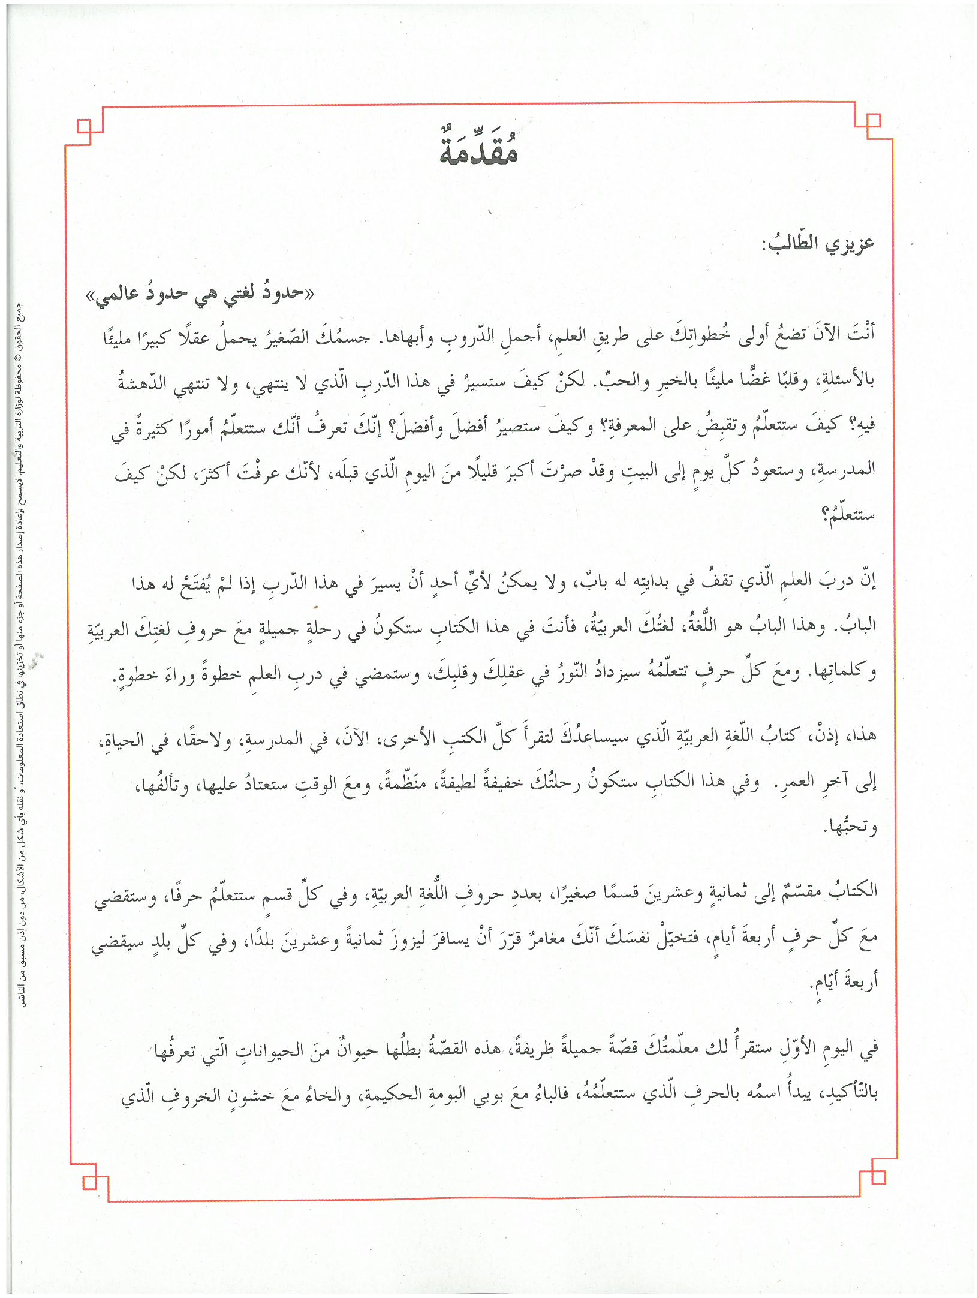 مُقَدِّمَةٌ
عزيزي الطّالبُ:
«حدودُ لغتي هي حدودُ عالمي»
أنْتَ الآنَ تضعُ أولى خُطواتِكَ على طريقِ العلمِ، أجملِ الدّروبِ وأبهاها. جسمُكَ الصّغيرُ يحملُ عقلًا كبيرًا مليئًا
بالأسئلةِ، وقلبًا غضًّا مليئًا بالخيرِ والحبِّ. لكنْ كيفَ ستسيرُ في هذا الدّربِ الّذي لا ينتهي، ولا تنتهي الدّهشةُ
فيهِ؟ كيفَ ستتعلّمُ وتقبضُ على المعرفةِ؟ وكيفَ ستصيرُ أفضلَ وأفضلَ؟ إنّكَ تعرفُ أنّكَ ستتعلّمُ أمورًا كثيرةً في
المدرسةِ، وستعودُ كلَّ يومٍ إلى البيتِ وقدْ صرْتَ أكبرَ قليلًا منَ اليومِ الّذي قبلَه، لأنّكَ عرفْتَ أكثرَ، لكنْ كيفَ
ستتعلّمُ؟
إنّ دربَ العلمِ الّذي تقفُ في بدايتِه له بابٌ، ولا يمكنُ لأيِّ أحدٍ أنْ يسيرَ في هذا الدّربِ إذا لمْ يُفتَحْ له هذا
البابُ. وهذا البابُ هو اللُّغةُ، لغتُكَ العربيّةُ، فأنتَ في هذا الكتابِ ستكونُ في رحلةٍ جميلةٍ معَ حروفِ لغتِكَ العربيّةِ
وكلماتِها. ومعَ كلِّ حرفٍ تتعلّمُهُ سيزدادُ النّورُ في عقلِكَ وقلبِكَ، وستمضي في دربِ العلمِ خطوةً وراءَ خطوةٍ.
هذا، إذنْ، كتابُ اللّغةِ العربيّةِ الّذي سيساعدُكَ لتقرأَ كلَّ الكتبِ الأخرى، الآنَ، في المدرسةِ، ولاحقًا، في الحياةِ،
إلى آخرِ العمرِ. وفي هذا الكتابِ ستكونُ رحلتُكَ خفيفةً لطيفةً، منَظّمةً، ومعَ الوقتِ ستعتادُ عليها، وتألفُها،
وتحبُّها.
الكتابُ مقسّمٌ إلى ثمانيةٍ وعشرينَ قسمًا صغيرًا، بعددِ حروفِ اللُّغةِ العربيّةِ، وفي كلِّ قسمٍ ستتعلّمُ حرفًا، وستقضي
معَ كلِّ حرفٍ أربعةَ أيامٍ، فتخيّلْ نفسَكَ أنّكَ مغامرٌ قرّرَ أنْ يسافرَ ليزورَ ثمانيةً وعشرينَ بلدًا، وفي كلِّ بلدٍ سيقضي
أربعةَ أيّامٍ.
في اليومِ الأوّلِ ستقرأُ لك معلّمتُكَ قصّةً جميلةً ظريفةً، هذه القصّةُ بطلُها حيوانٌ منَ الحيواناتِ الّتي تعرفُها
بالتّأكيدِ، يبدأُ اسمُه بالحرفِ الّذي ستتعلّمُهُ، فالباءُ معَ بوبي البومةِ الحكيمةِ، والخاءُ معَ خشونٍ الخروفِ الّذي
جميع الحقوق © محفوظة لوزارة التربية والتعليم. لا يسمح بإعادة إصدار هذه الصفحة أو جزء منها أو تخزينها في نطاق استعادة المعلومات، أو نقله بأي شكل من الأشكال، من دون إذن مسبق من الناشر